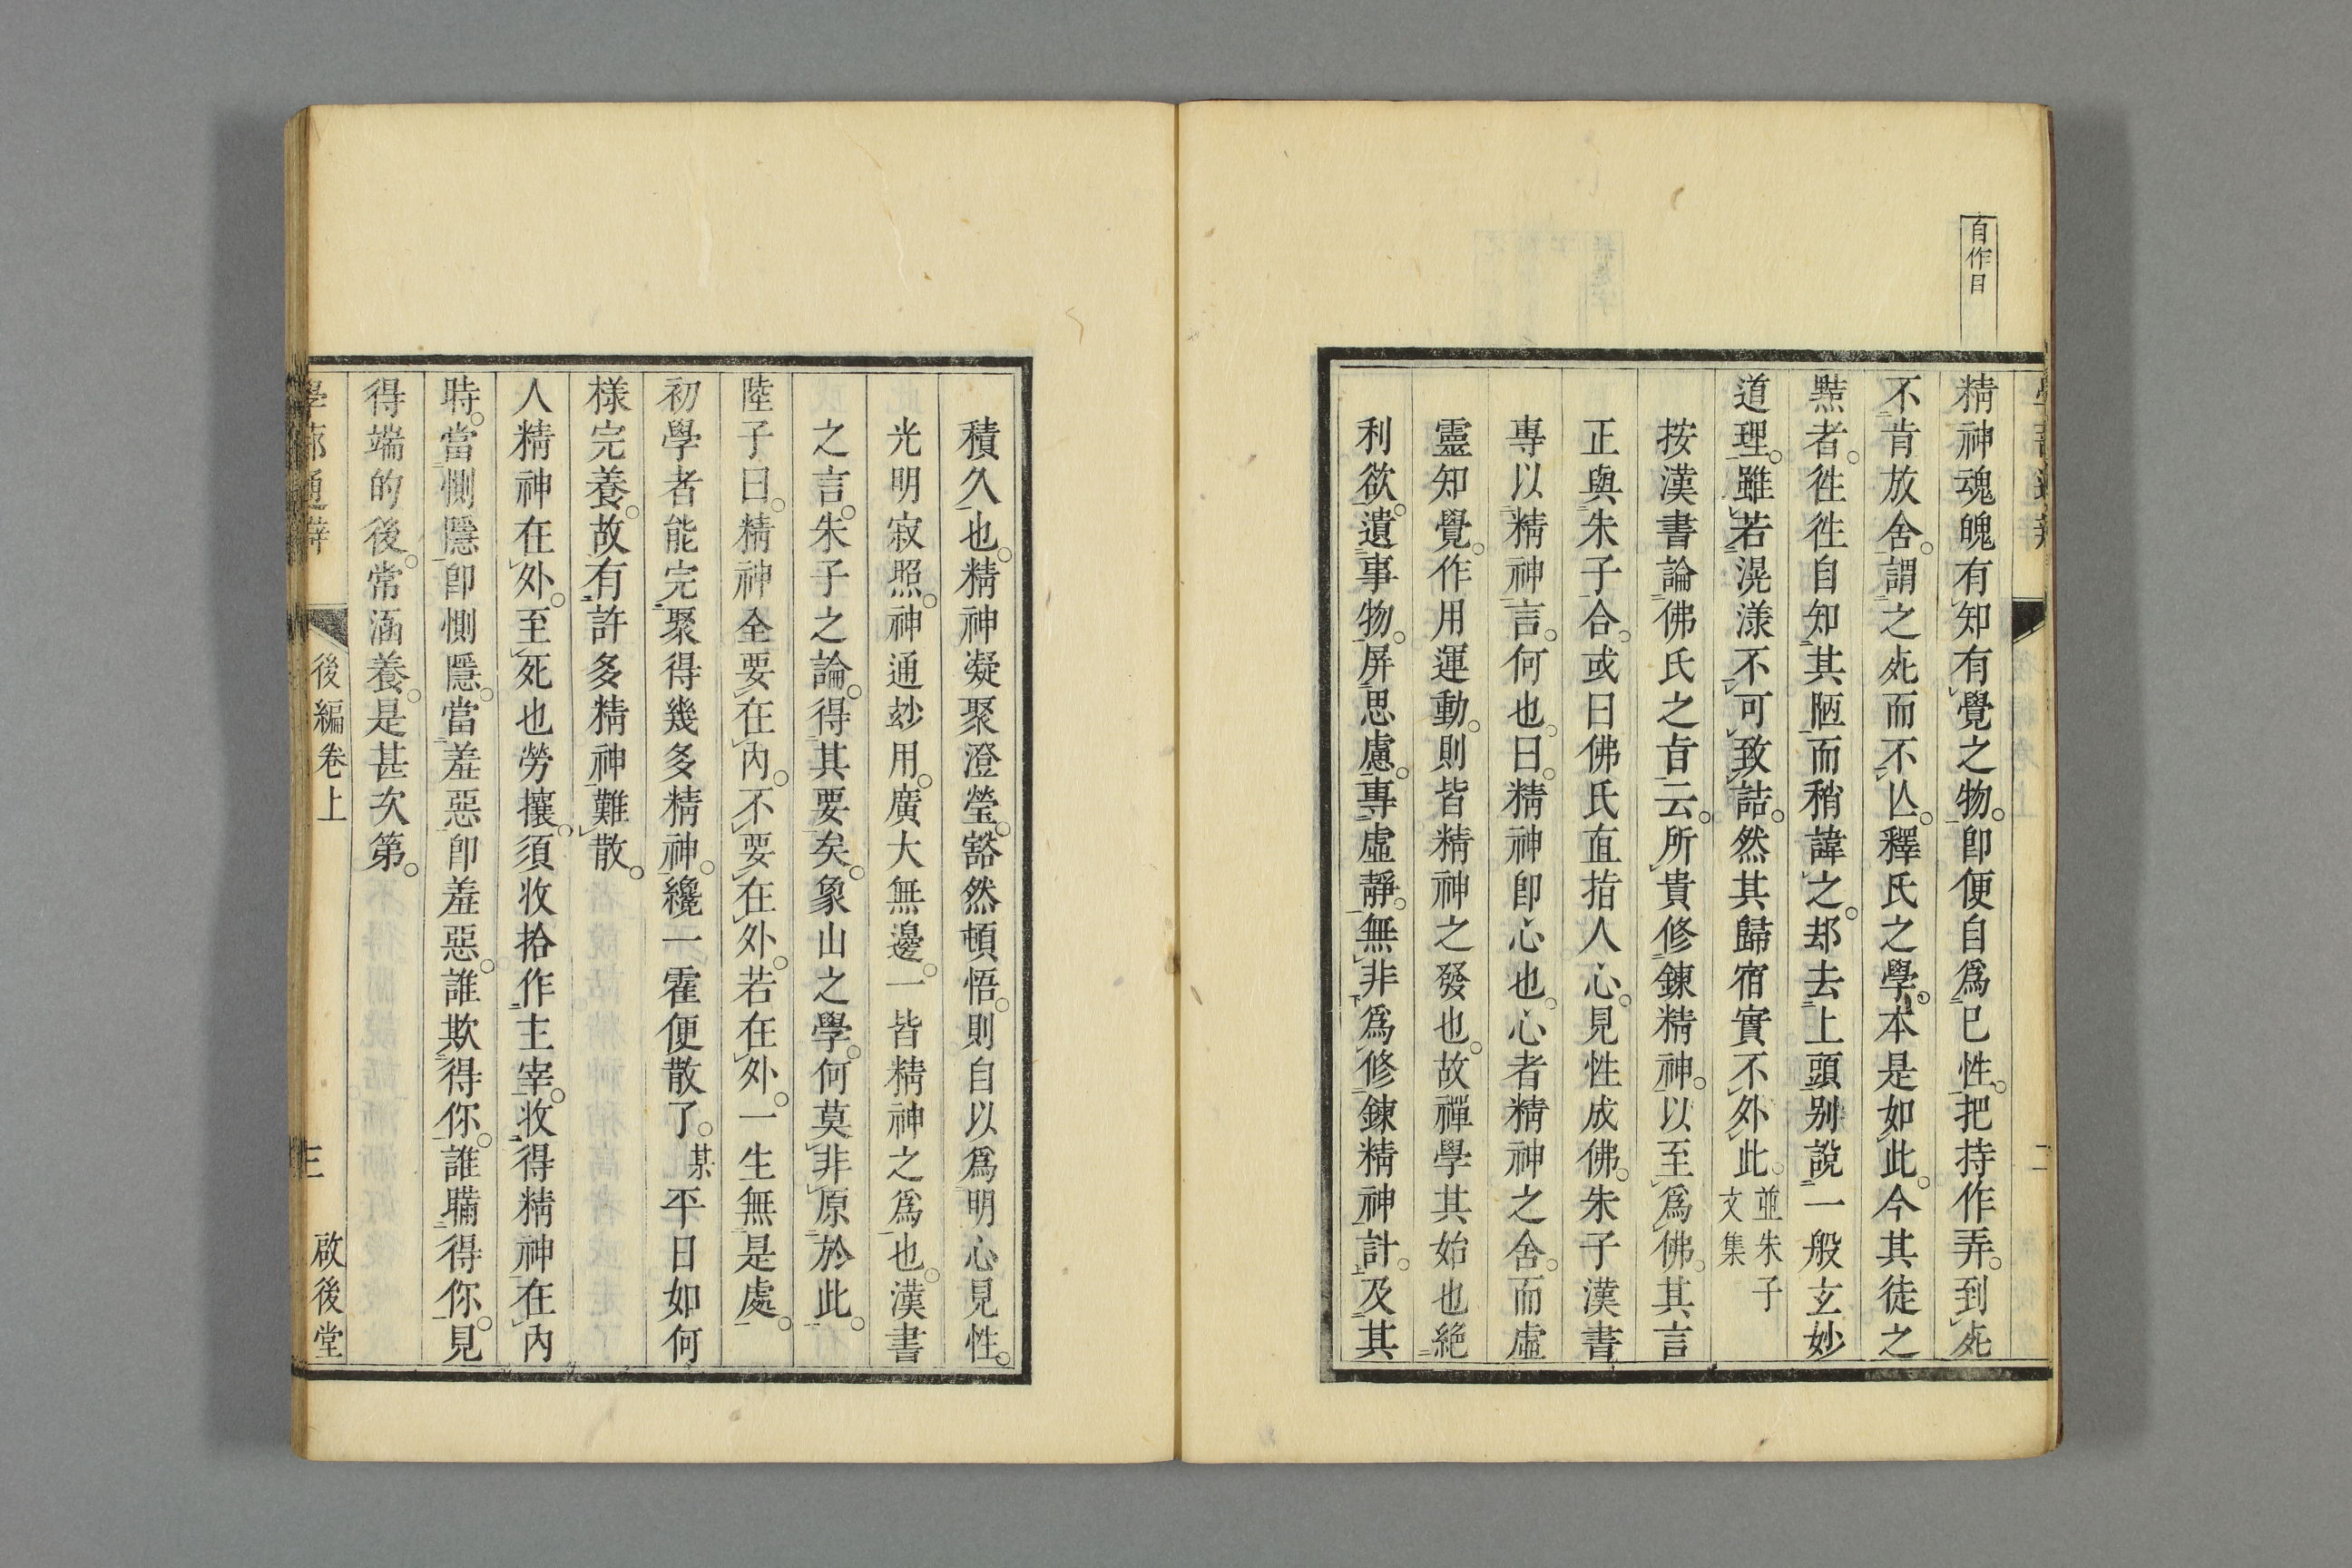 自作目
精神魂魄有知有覺之物。卽便自爲已性。把持作弄。到死
不肯放舍。謂之死而不亾。釋氏之學。本是如此。今其徒之
黠者。徃徃自知其陋而稍諱之。却去上頭别說一般玄妙
道理。雖若滉漾不可致詰。然其歸宿實不外此。並朱子文集
按漢書論佛氏之㫖云。所貴修鍊精神。以至爲佛。其言
正與朱子合。或曰佛氏直指人心。見性成佛。朱子漢書
專以精神言。何也。曰。精神卽心也。心者精神之舍。而虛
靈知覺。作用運動。則皆精神之發也。故禪學其始也絶
利欲。遺事物。屏思慮。專虛靜。無非爲修鍊精神計。及其
積久也。精神凝聚澄瑩。豁然頓悟。則自以爲明心見性。
光明寂照。神通玅用。廣大無邊。一皆精神之爲也。漢書
之言。朱子之論。得其要矣。象山之學。何莫非原於此。
陸子曰。精神全要在內。不要在外。若在外。一生無是處。
初學者能完聚得幾多精神。纔一霍便散了。某平日如何
様完養。故有許多精神難散。
人精神在外。至死也勞攘。須收拾作主宰。收得精神在內
時。當惻隱卽惻隱。當羞惡卽羞惡。誰欺得你。誰瞞得你。見
得端的後。常涵養。是甚次第。
學蔀通辨 後編卷上 三 啟後堂